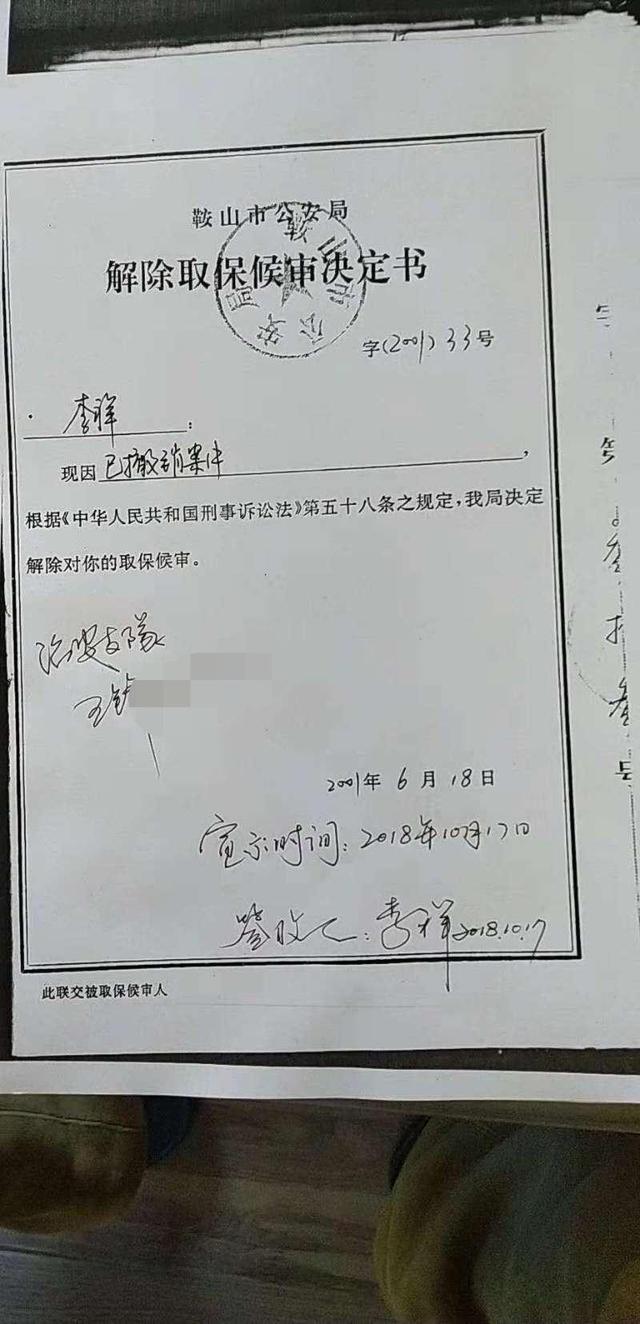 鞍山市公安局
解除取保候审决定书
鞍山市公安局
字(2001)33号
李祥:
现因已撤销案件,
根据《中华人民共和国刑事诉讼法》第五十八条之规定,我局决定
解除对你的取保候审。
治安支隊
王
2001年6月18日
宣示时间:2018年10月17日
签收人:李祥2018.10.17
此联交被取保候审人